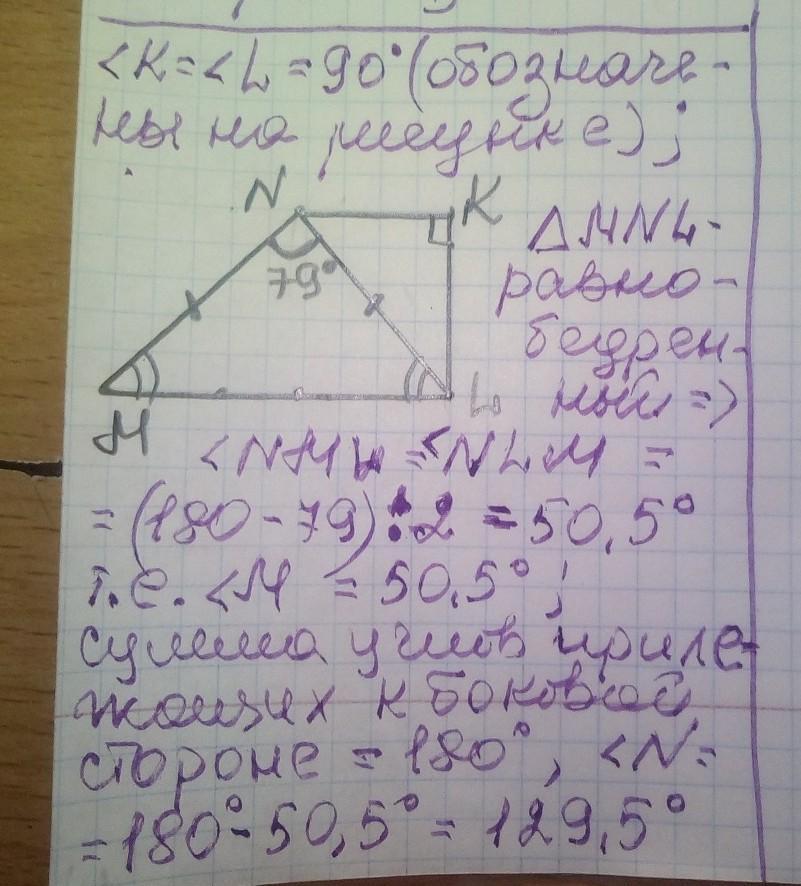 <K=<L=90° (обозначе-
ны на рисунке);
N
K
79°
M
L
△MNL-
равно-
бедрен-
ный =>
<NML = <NLM =
= (180-79):2 = 50,5°
т.е. <M = 50,5°;
сумма углов приле-
жащих к боковой
стороне = 180°, <N=
=180°-50,5° = 129,5°